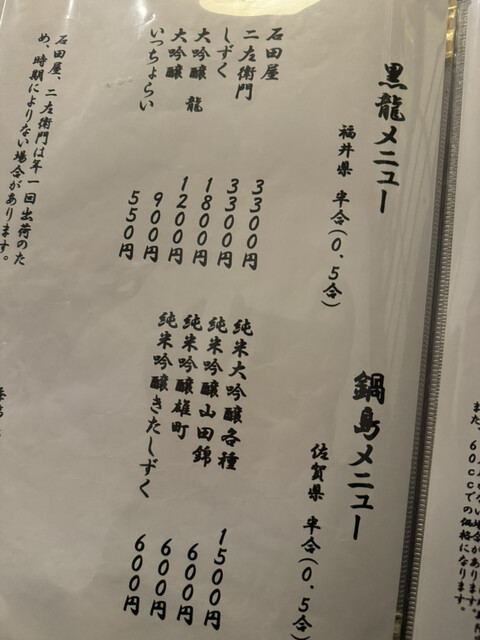 黒龍メニュー
福井県 半合(0.5合)
石田屋 3300円
二左衛門 3300円
しずく 1800円
大吟醸 龍 1200円
大吟醸 900円
いっちょらい 550円
石田屋、二左衛門は年一回出荷のた
め、時期によりない場合があります。
鍋島メニュー
佐賀県 半合(0.5合)
純米大吟醸各種 1500円
純米吟醸山田錦 600円
純米吟醸雄町 600円
純米吟醸きたしずく 600円
ない場合があります。
また、60ccでの価格になります。